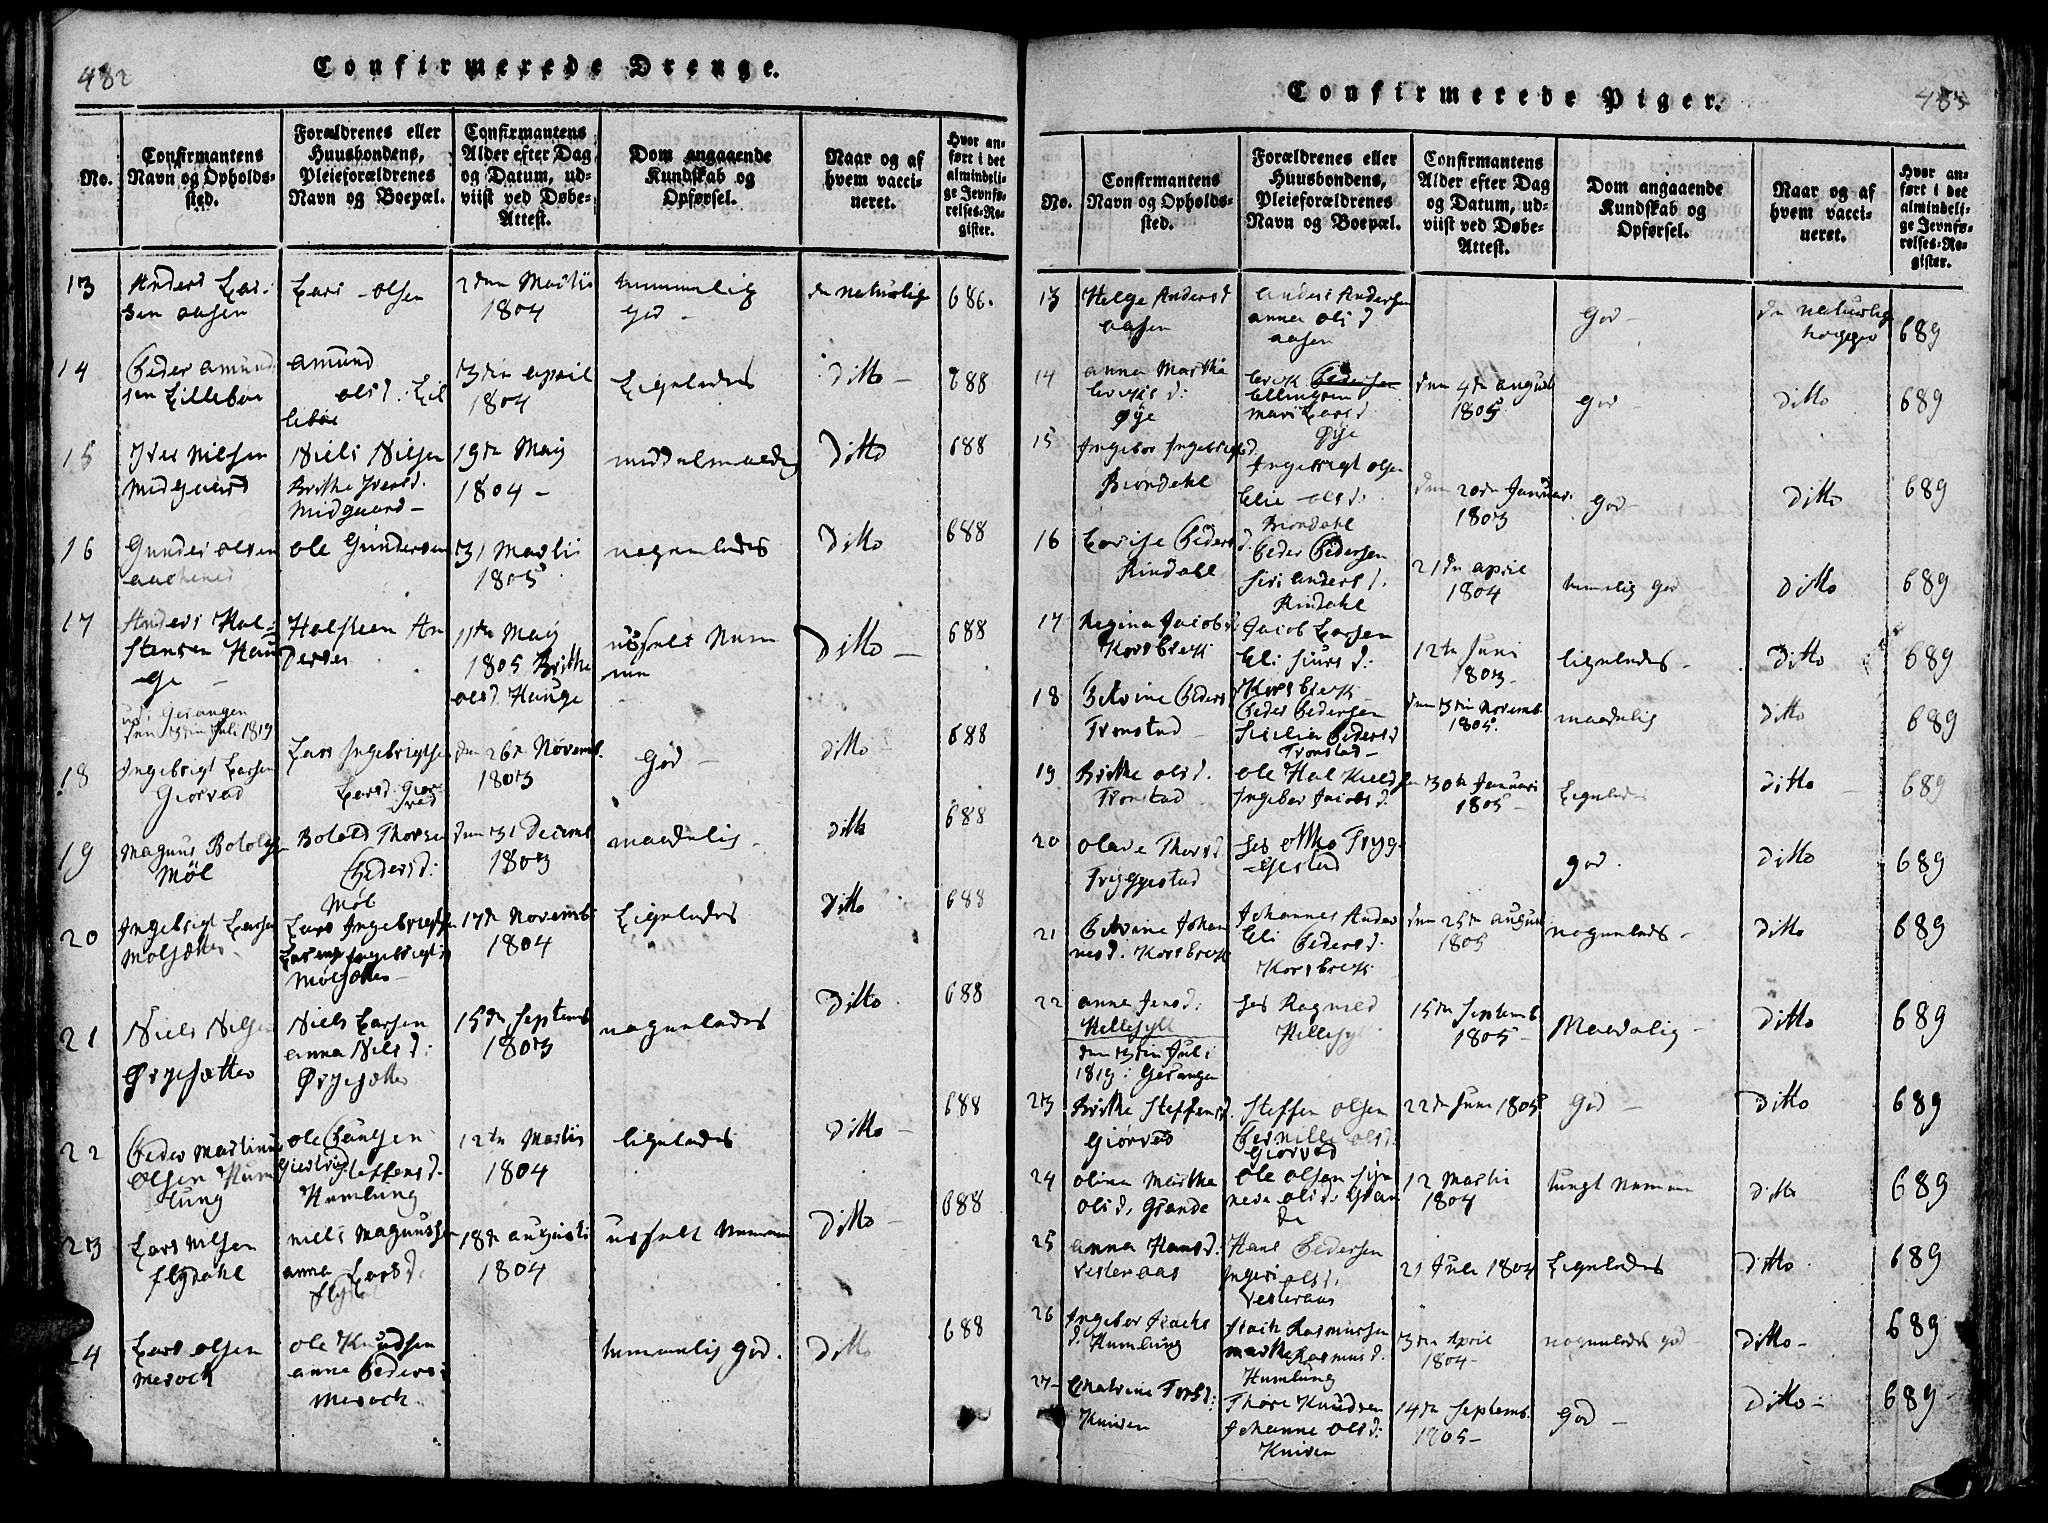 482
Confirmerede Drenge.
No.
Confirmantens
Navn og Opholds-
sted.
Forældrenes eller
Huusbondens,
Pleieforældrenes
Navn og Boepæl.
Confirmantens
Alder efter Dag
og Datum, ud-
viist ved Døbe-
Attest.
Dom angaaende
Kundskab og
Opførsel.
Naar og af
hvem vacci-
neret.
Hvor an-
ført i det
almindeli-
ge Jevnfø-
relses-Re-
gister.
13
Anders Lar-
sen aasen
Lars Olsen
2den Martii
1804
temmelig
God
de naturlige
686.
14
Peder amund
sen Lillebøe
amund
olsd. Lil
lebøe
3die april
1804
Ligeledes
Ditto
688
15
Iver Nilsen
Midgaard
Niels Nilsen
Brithe Iversd.
Midgaard
19de Maij
1804
middelmaadig
Ditto
688
16
Gunder olsen
ole Gundersen
31 Martii
1805
nogenledes
Ditto
688
17
Anders Hal-
stensen Hau
ge
Halsteen An
dersen
11te Maij
1805 Brithe
olsd Hauge
usselt Nem
me
Ditto
688
ud i Geranger
den 3die Juli 1819
18
Ingebrigt Larsen
Giørvad
Lars Ingebrigtsen
Larsd. Giør
vad
den 26de Novemb.
1803
God
ditto
688
19
Magnus Botolfsen
Møl
Botold Thorsen
Pedersd:
Møl
den 31 Decemb
1803
maadelig
ditto
688
20
Ingebrigt Larsen
Molsætter
Lars Ingebrigtsen
Mølsætter
17de Novemb
1804
Ligeledes
Ditto
688
21
Niels Nilsen
Ørjesætter
Niels Larsen
anna Nilsd:
Ørjesætter
15de Septemb
1803
nogenledes
Ditto
688
22
Peder Martinus
Olsen Hum
lung
ole Paulsen
Giertrud Steffensd.
Humlung
12te Martii
1804
ligeledes
Ditto
688
23
Lars Nilsen
flydahl
Niels Magnussen
anna Larsd.
18de augusti
1804
usselt Nemme
Ditto
688
24
Lars olsen
Meroch
Ole Knudsen
anne Peders
Meroch
temmelig god.
Ditto
688
483
Confirmerede Piger.
No.
Confirmantens
Navn og Opholds-
sted.
Forældrenes eller
Huusbondens,
Pleieforældrenes
Navn og Boepæl.
Confirmantens
Alder efter Dag
og Datum, ud-
viist ved Døbe-
Attest.
Dom angaaende
Kundskab og
Opførsel.
Naar og af
hvem vacci-
neret.
Hvor an-
ført i det
almindeli-
ge Jevnfø-
relses-Re-
gister.
13
Helge Andersd
aasen
Anders Andersen
anna olsd
aasen
God
de naturlige
689
14
anna Martha
Øye
Pedersen
Ellingsen
Mari Larsd
Øye
den 4de august
1805
God
ditto
689
15
Ingebor Ingebrigtsd.
Biørdahl
Ingebrigt olsen
Elie olsd:
Biørdahl
den 20de Januar.
1803
God
ditto
689
16
Lovise Peders
d. Rindahl
Peder Pedersen
Siri Andersd.
Rindahl
21de april
1804
temelig God
ditto
689
17
Regina Jacobs
Korsbrek
Jacob Larsen
Eli Siursd:
Korsbrek
12te Juni
1803
ligeledes
ditto
689
18
Petrine Peders
Tronstad
Peder Pedersen
Pedersd
Tronstad
den 3die Novemb.
1805
maadelig
ditto
689
19
Brithe olsd.
Tronstad
Ole
Ingebor Jacobsd.
30te Januari
1805
Ligeledes
ditto
689
20
Olave Thorsd
Tryggestad
hos Ottho Tryg-
gestad
god.
Ditto
689
21
Petrine Johan
nesd. Korsbrek
Johannes Anders
Eli Pedersd.
Korsbrek
den 25de august
1805
nogenleds
ditto
689
22
anna Jensd:
Hellesylt
den 3die Juli
1819 i Geranger
hos Ragnild
Hellesylt
15de Septemb
1805
Maadelig
Ditto
689
23
Brithe Steffensd.
Giørvad
Steffen olsen
Pernille olsd:
Giørvad
22de Juni 1805
God
Ditto
689
24
olina Martha
olsd. Grande
Ole olsen Sig
neva olsd. Gran
de
12 Martii
1804
tungt Nemme
ditto
689
25
anna Hansd.
Vesteraas
Hans Pedersen
Ingeri olsd.
Vesteraas
21 Juli 1804
Ligeledes
Ditto
689
26
Ingebor Isachs
d. Humlung
Isach Rasmussen
Marthe Rasmusd.
Humlung
3die April
1804
nogenledes god
ditto
689
27
Torsd:
Kniven
Thore Knudsen
Johanne olsd:
Kniven
14de Septemb.
1805
God
Ditto
689